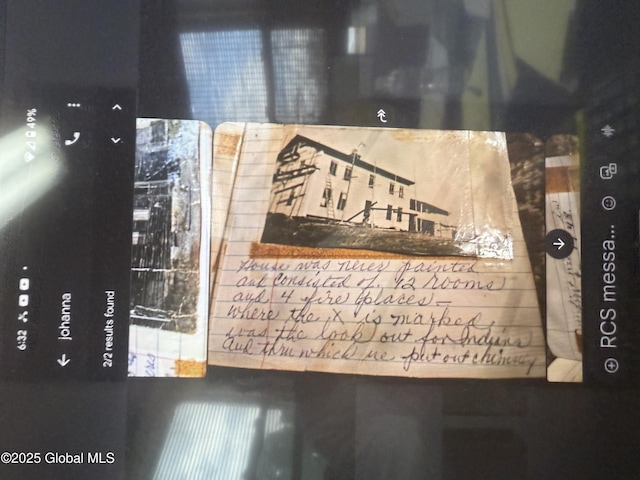 6:32
49%
johanna
2/2 results found
House was never painted
and consisted of 12 rooms
and 4 fire places –
where the X is marked
was the look out for Indians
and thru which we put out chimney
RCS messa...
©2025 Global MLS